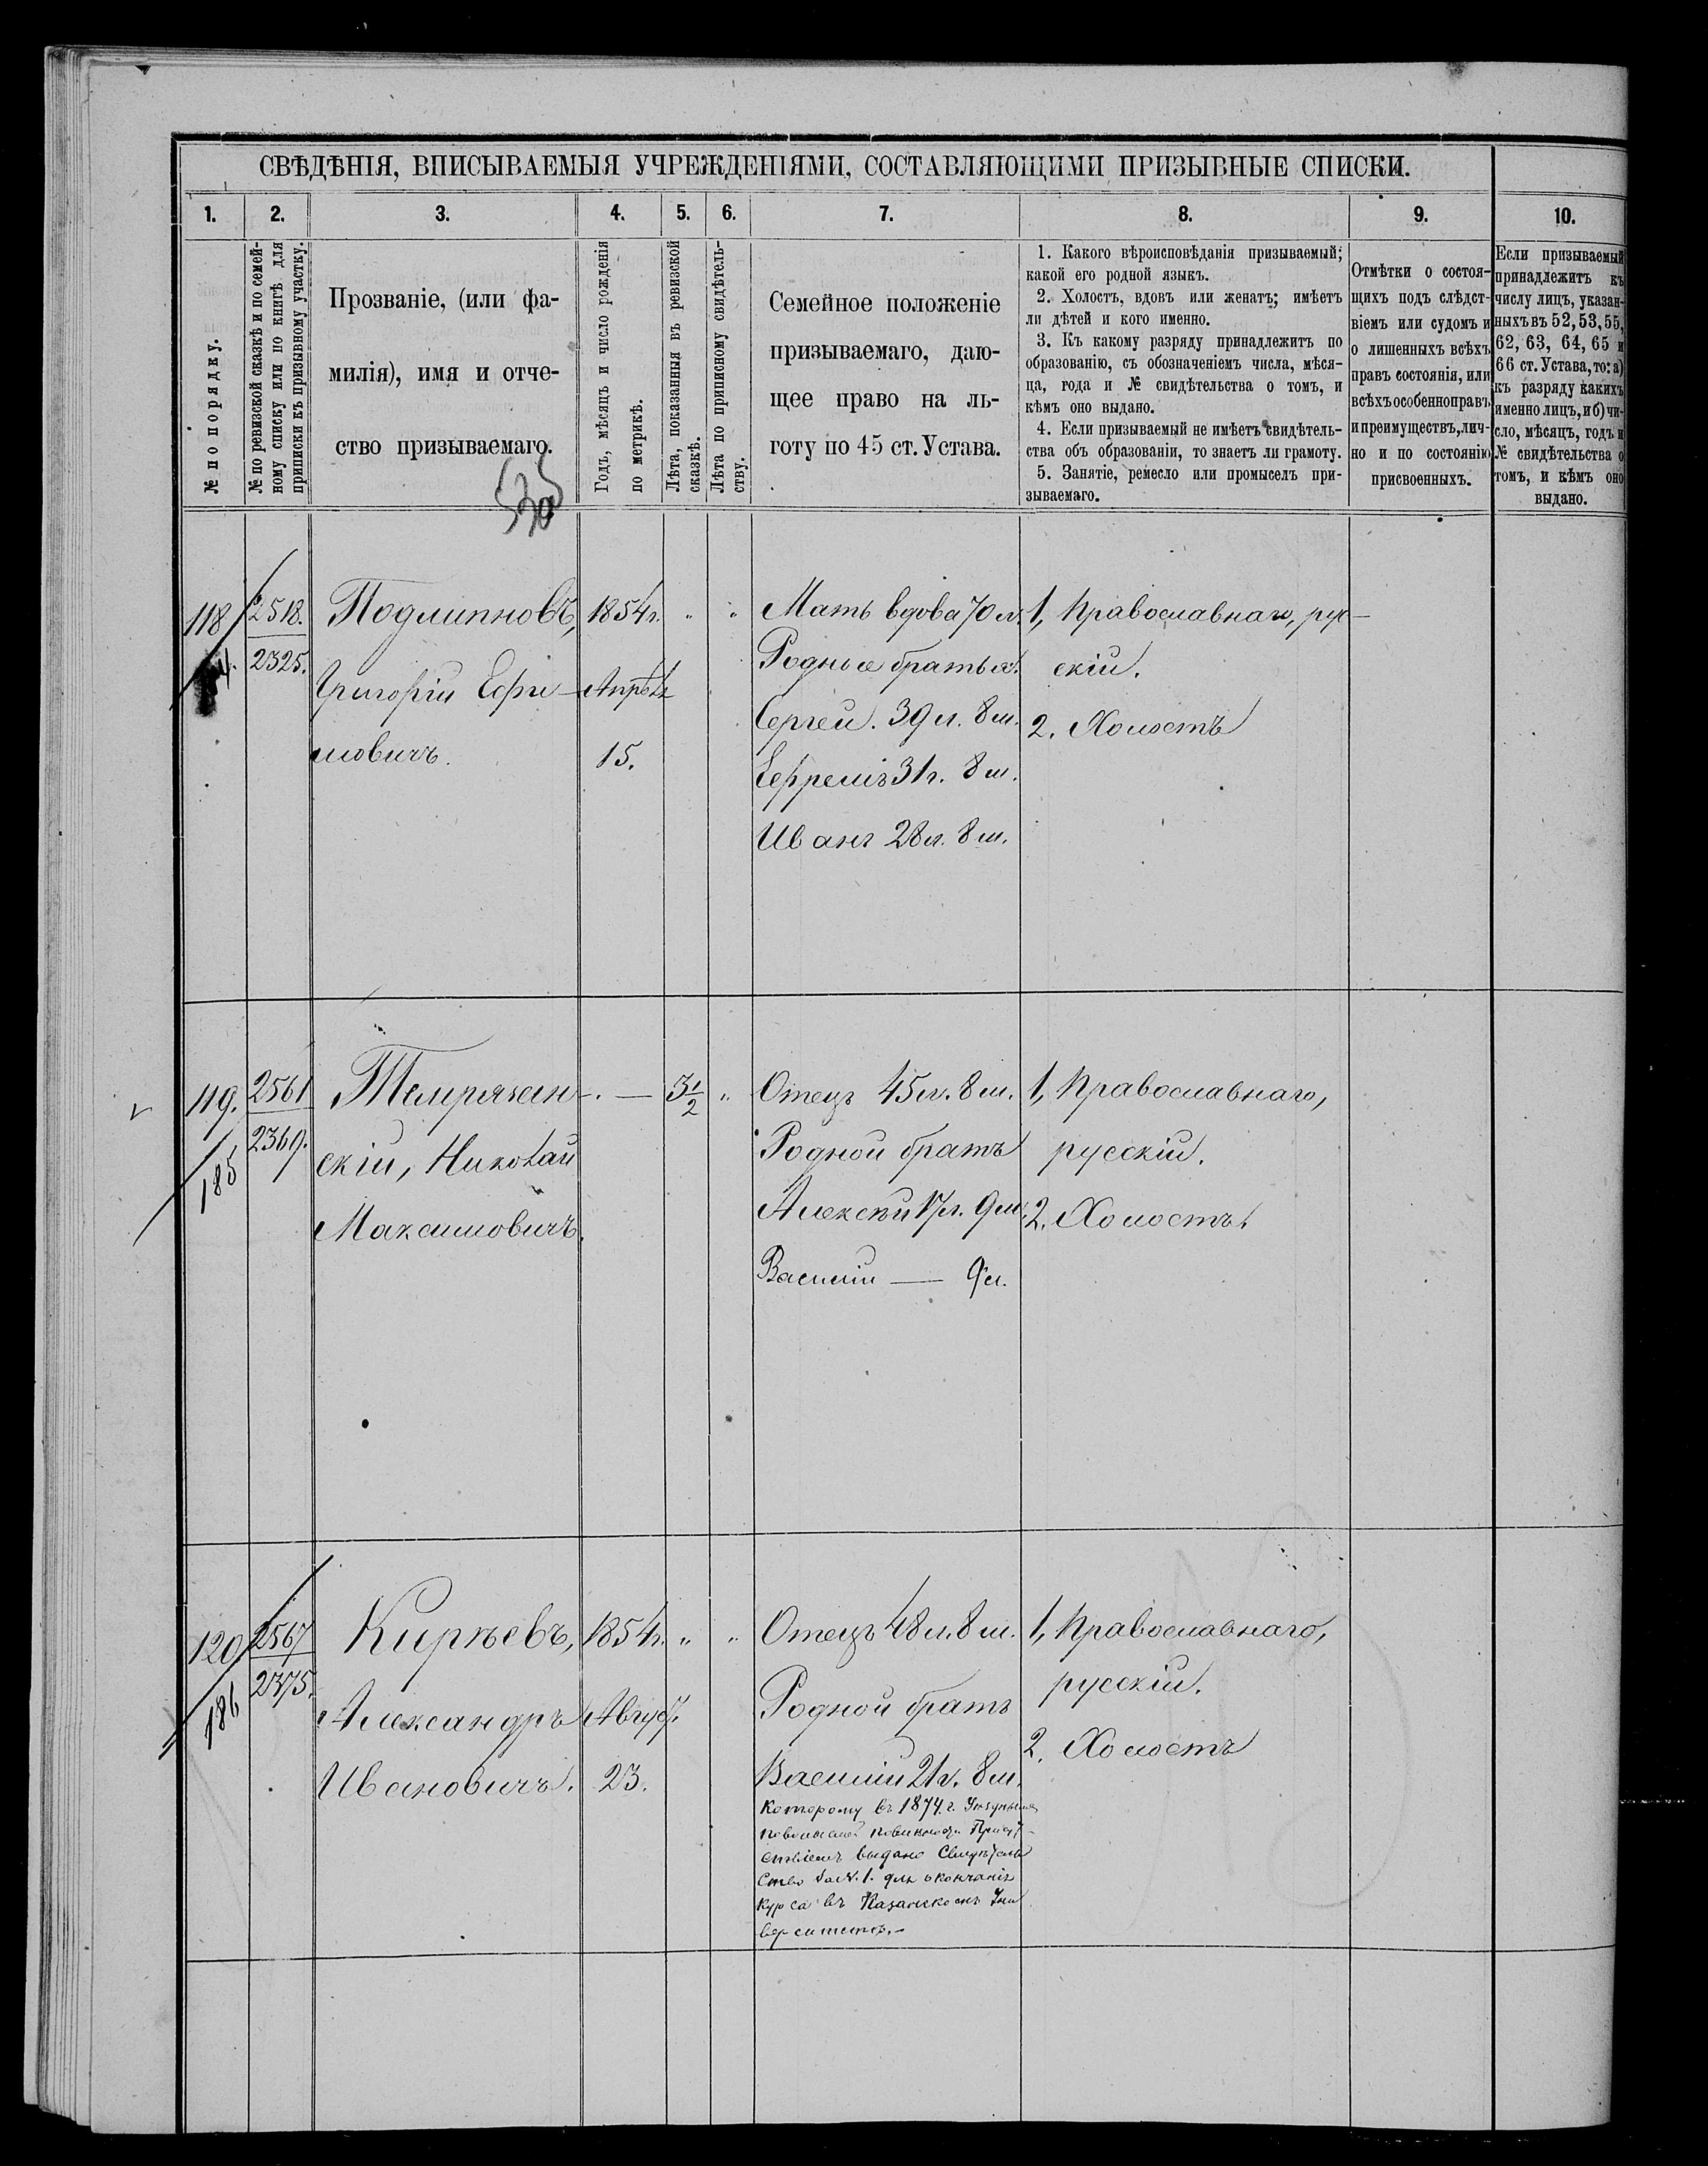 СВѢДѢНІЯ, ВПИСЫВАЕМЫЯ УЧРЕЖДЕНІЯМИ, СОСТАВЛЯЮЩИМИ ПРИЗЫВНЫЕ СПИСКИ.
1.
2.
3.
4.
5.
6.
7.
8.
9.
10.
№ по порядку.
№ по ревизской сказкѣ и по семей-
ному списку или по книгѣ для
приписки къ призывному участку.
Прозваніе, (или фа-
милія), имя и отче-
ство призываемаго.
Годъ, мѣсяцъ и число рожденія
по метрикѣ.
Лѣта, показанныя въ ревизской
сказкѣ.
Лѣта по приписному свидѣтель-
ству.
Семейное положеніе
призываемаго, даю-
щее право на ль-
готу по 45 ст. Устава.
1. Какого вѣроисповѣданія призываемый;
какой его родной языкъ.
2. Холостъ, вдовъ или женатъ; имѣетъ
ли дѣтей и кого именно.
3. Къ какому разряду принадлежитъ по
образованію, съ обозначеніемъ числа, мѣся-
ца, года и № свидѣтельства о томъ, и
кѣмъ оно выдано.
4. Если призываемый не имѣетъ свидѣтель-
ства объ образованіи, то знаетъ ли грамоту.
5. Занятіе, ремесло или промыселъ при-
зываемаго.
Отмѣтки о состоя-
щихъ подъ слѣдст-
віемъ или судомъ и
о лишенныхъ всѣхъ
правъ состоянія, или
всѣхъ особенно правъ
и преимуществъ, лич-
но и по состоянію
присвоенныхъ.
Если призываемый
принадлежитъ къ
числу лицъ, указан-
ныхъ въ 52, 53, 55,
62, 63, 64, 65 и
66 ст. Устава, то: а)
къ разряду какихъ
именно лицъ, и б) чи-
сло, мѣсяцъ, годъ и
№ свидѣтельства о
томъ, и кѣмъ оно
выдано.
118
2518.
2325.
Подлипновъ,
Григорій Ефи-
мовичъ.
1854 г.
Апрѣля
15.
"
"
Мать вдова 70 л.
Родные братья:
Сергей. 39 л. 8 м.
Ефремъ 31 г. 8 м.
Иванъ 28 л. 8 м.
1, Православнаго, рус-
скій.
2. Холостъ
119.
185
2561
2369.
Темрячен-
скій, Николай
Максимовичъ.
—
3 1/2
"
Отецъ 45 л. 8 м.
Родной братъ
Алексѣй 17 л. 9 м.
Василій — 9 л.
1, Православнаго,
русскій.
2. Холостъ.
120
186
2567
2375.
Кирѣевъ,
Александръ
Ивановичъ.
1854 г.
Август.
23.
"
"
Отецъ 48 л. 8 м.
Родной братъ
Василій 21 г. 8 м.
которому въ 1874 г. Уѣзднымъ
повинности Присут-
ствіемъ выдано Свидѣтель
ство за № 1. для окончанія
курса въ Казанскомъ Уни
верситетѣ.—
1, Православнаго,
русскій.
2. Холостъ